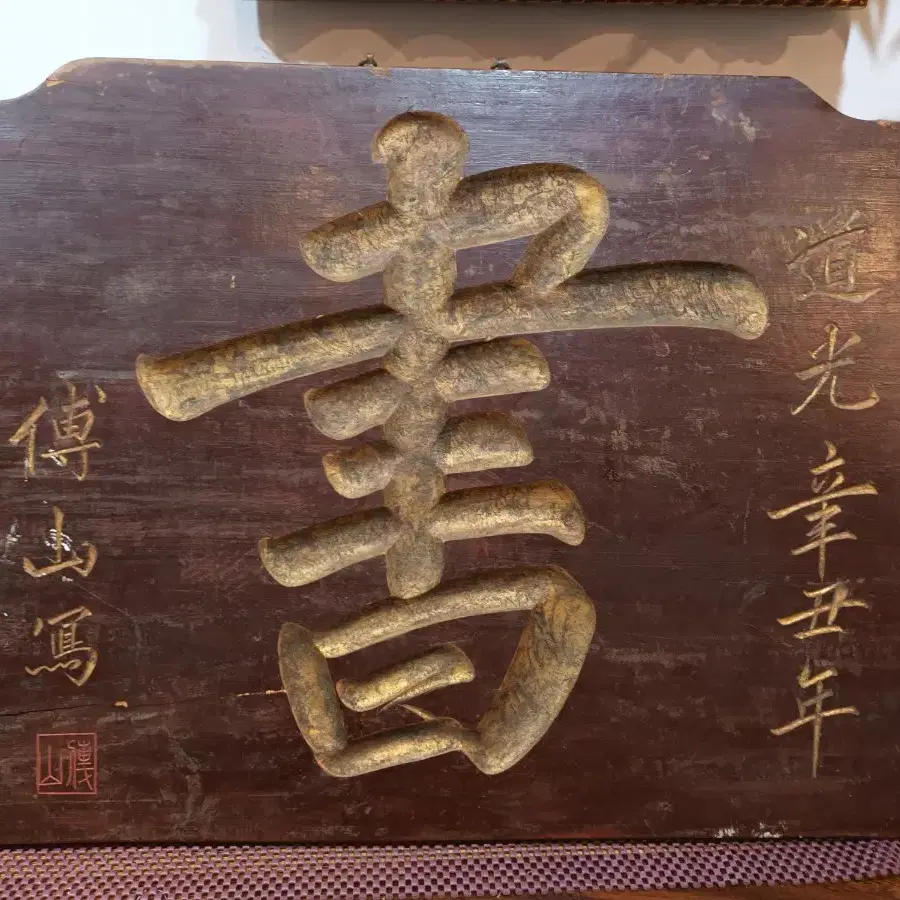 道光辛丑年
書
傅山寫